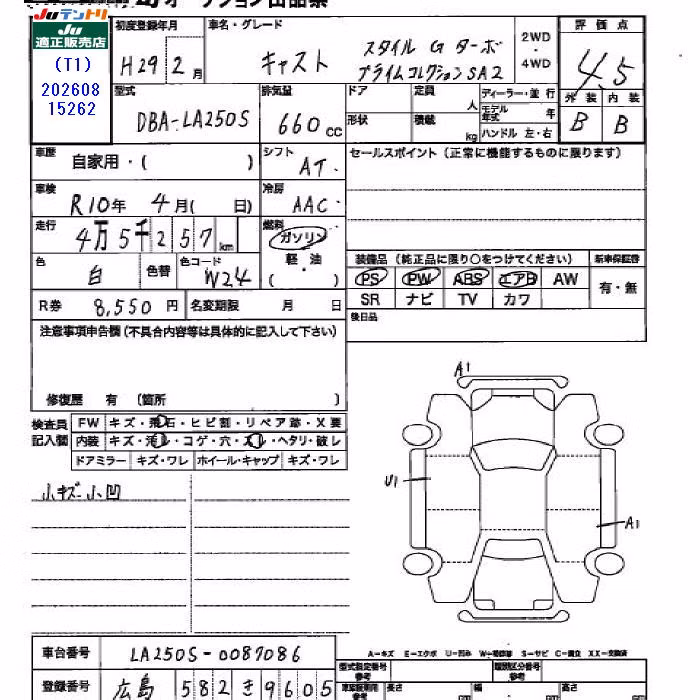 オークション出品票
Juテントリ
Ju
適正販売店
(T1)
202608
15262
初度登録年月
H29 2月
車名・グレード
キャスト
スタイル G ターボ
プライムコレクション SA2
2WD
・
4WD
評価点
4.5
外装 内装
B B
型式
DBA-LA250S
排気量
660cc
ドア 定員 人
形状 積載 kg
ディーラー・並行
モデル年式 年
ハンドル 左・右
車歴
自家用・( )
シフト
AT
セールスポイント(正常に機能するものに限ります)
車検
R10年 4月( 日)
冷房
AAC
走行
4万5千257km
燃料
ガソリン
軽・油
( )
色
白
色替
色コード
W24
装備品(純正品に限り○をつけてください)
新車保証書
PS PW ABS エアB AW
SR ナビ TV カワ
有・無
R券 8,550円
名変期限 月 日
後日品
注意事項申告欄(不具合内容等は具体的に記入して下さい)
修復歴 有 (箇所 )
検査員
記入欄
FW キズ・飛石・ヒビ割・リペア跡・X要
内装 キズ・汚れ・コゲ・穴・スレ・ヘタリ・破レ
ドアミラー キズ・ワレ ホイール・キャップ キズ・ワレ
小キズ 小凹
A1
U1
A1
A-キズ E-エクボ U-凹み W-補修跡 S-サビ C-腐食 XX-交換済
車台番号 LA250S-0087086
登録番号 広島 582 き 9605
型式指定番号
参考
類別区分番号
参考
長さ
幅
高さ